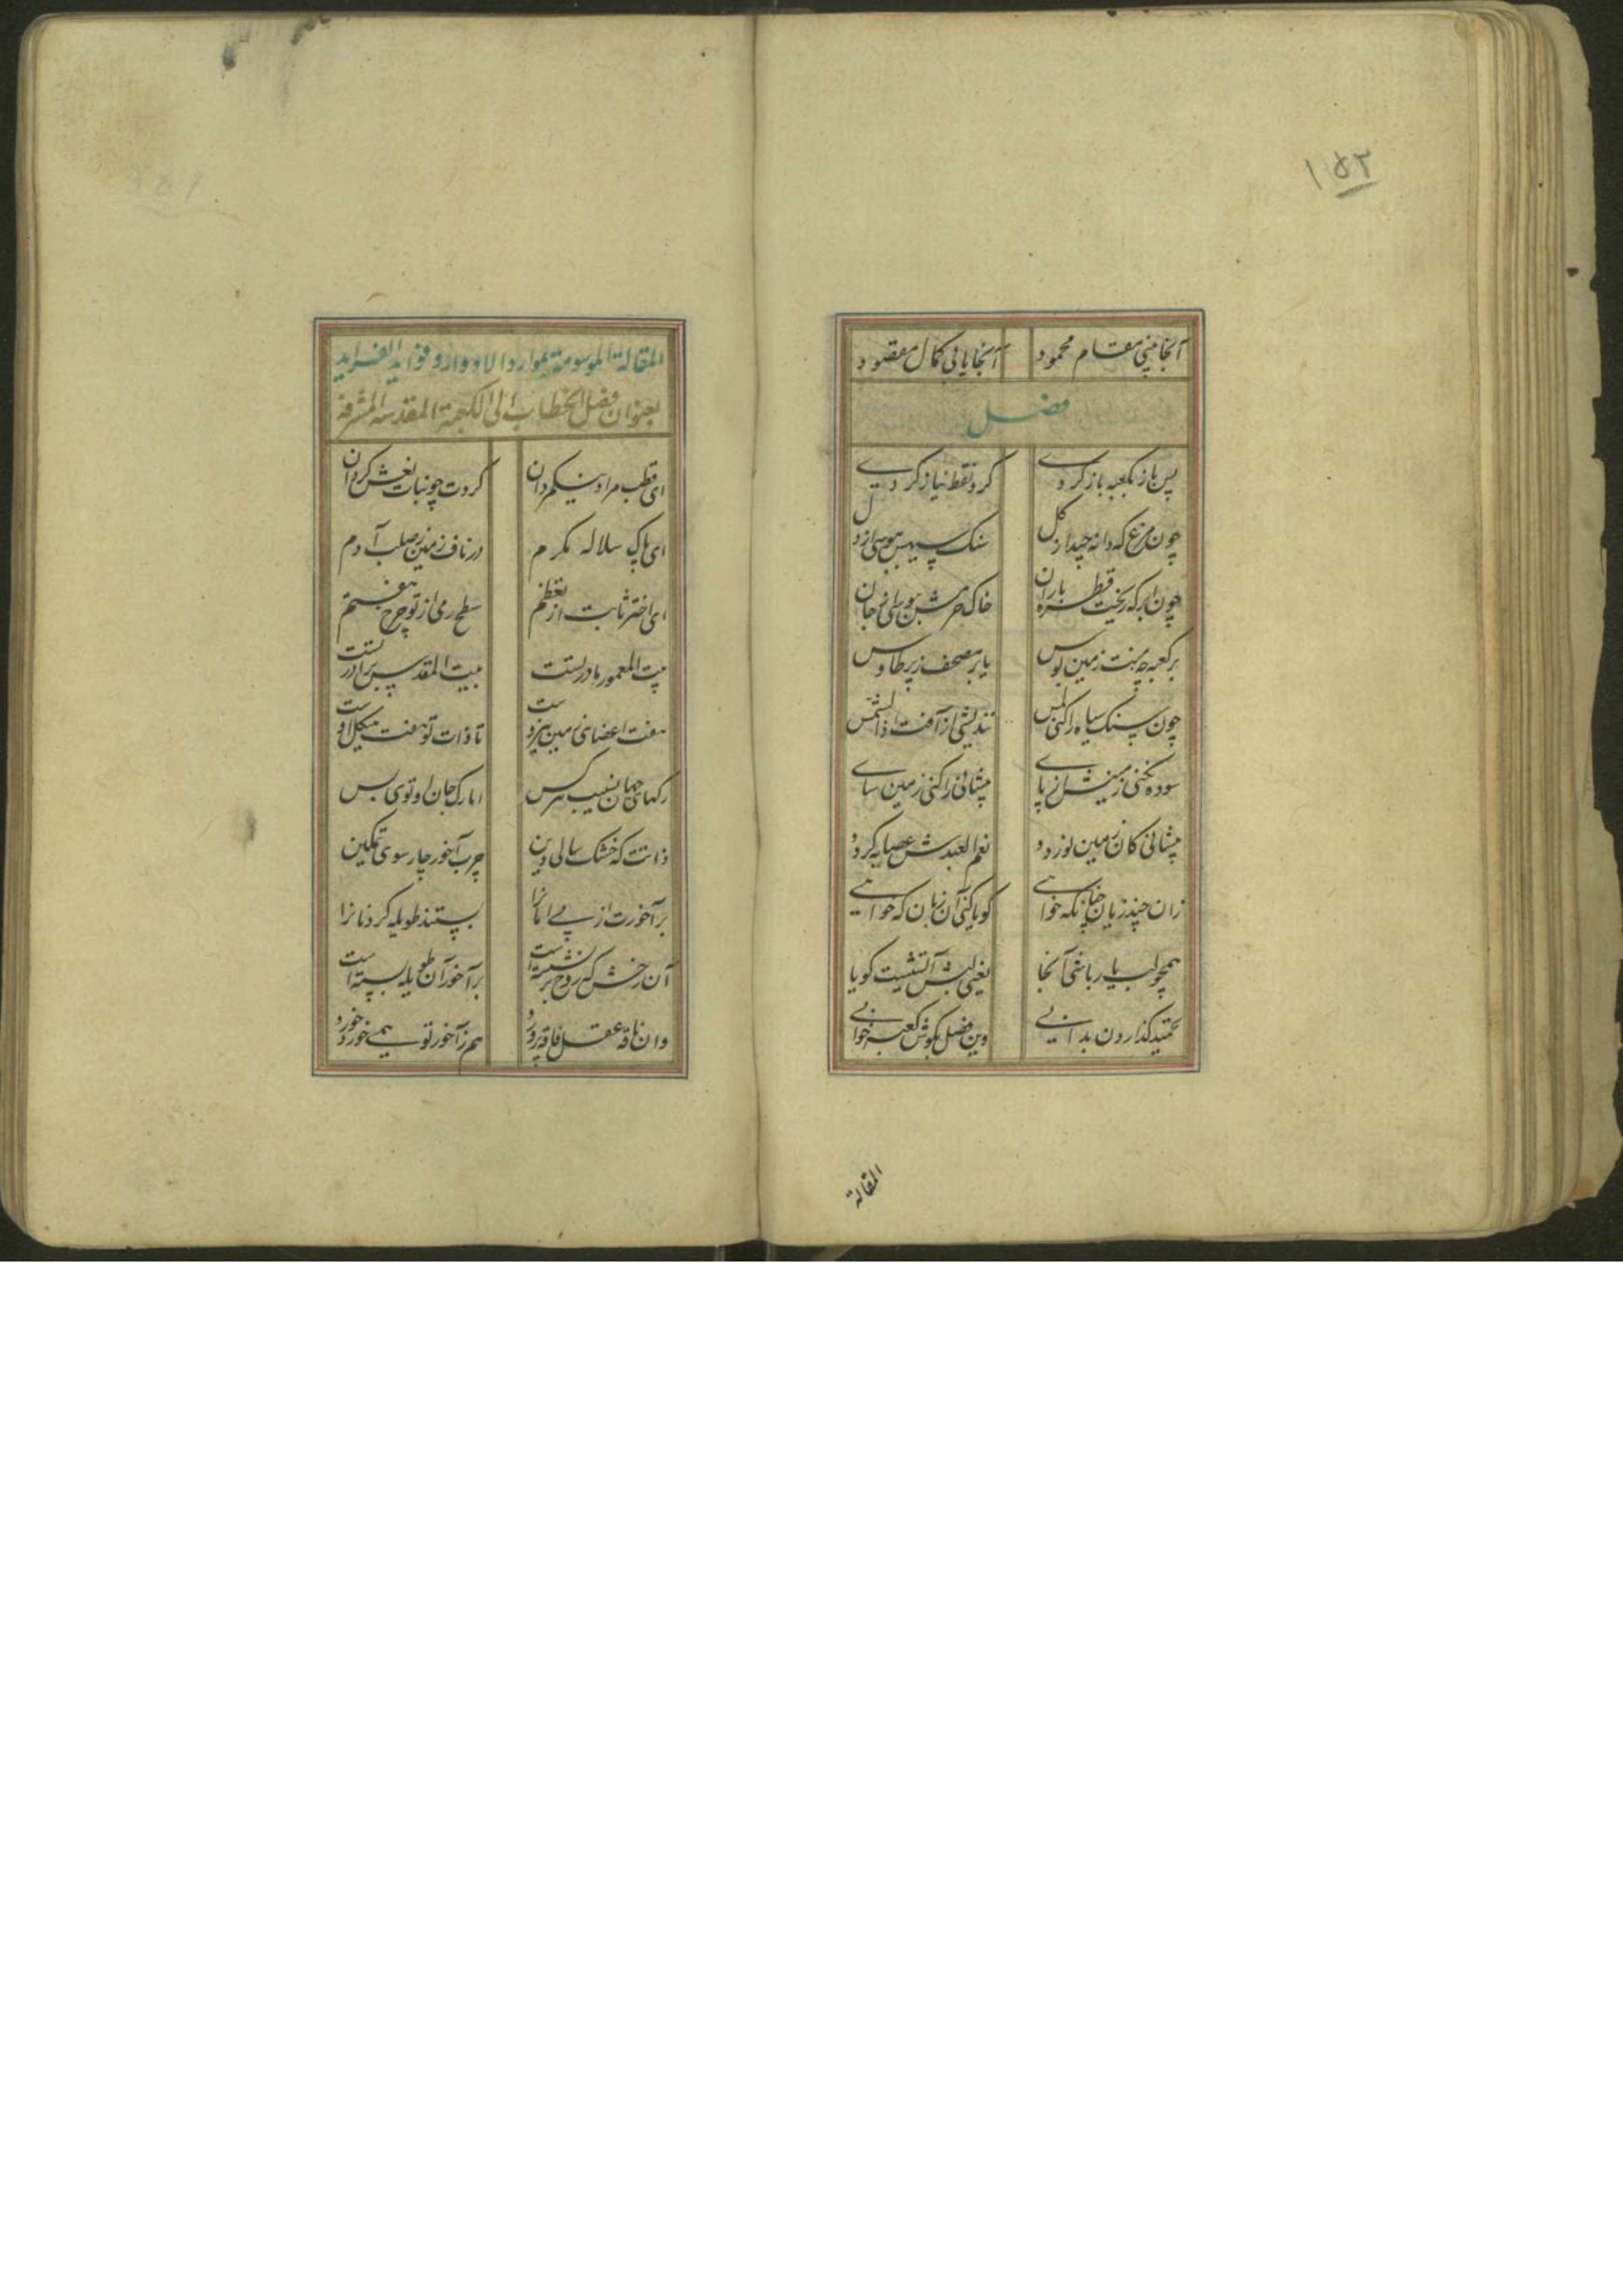 ۱۵۲
آنجا بینی مقام محمود آنجا یابی کمال مقصود
فصل
پس باز بکعبه باز کردی کرد نقط نیاز کردی
چون مرغ که دانه چید از کل سنک سیهش ببوسی از دل
چون ابر که ریخت قطره باران خاک حرمش ببوسی از جان
بر کعبه چو بینت زمین بوس یا بر مصحف ز پر طاوس
چون سنک سیاه را کنی لمس نندیشی از آفت اذا الشمس
سوده نکنی زمینش از پای پیشانی را کنی زمین سای
پیشانی کان زمین نوردد نعم العبدش عصابه کردد
زان چند زیان چنانکه خواهی کویا کنی آن زبان که خواهی
همچو لب یار باشی آنجا یعنی لبش آتشیست کویا
تحمید کذاردن بدانی وین فصل بکوش کعبه خوانی
المقالة
المقالة الموسومة بموارد الاوراد و فواید الفراید
بعنوان فصل الخطاب الی الکعبة المقدسه المشرفة
ای قطب مراد نیکمردان کردت چو بنات نعش کردان
ای پاک سلاله مکرم در ناف زمین ز صلب آدم
ای اختر ثابت از تعظم سطح رمی از تو چرخ هفتم
بیت المعمور مادر تست بیت المقدس برادر تست
هفت اعضای زمین بنیروست تا ذات تو هفت هیکل اوست
رکهای جهان نسیب هر کس اما رک جان او توی بس
ذاتت که خشک سالی دین چرب آخور چار سوی تمکین
بر آخورت از پی امانرا بستند طویله کردنانرا
آن رخش که روح بر نشسته است بر آخور آن طویله بسته است
وان ناقه عقل فاقه پرورد هم ز آخور تو همی خورد خورد